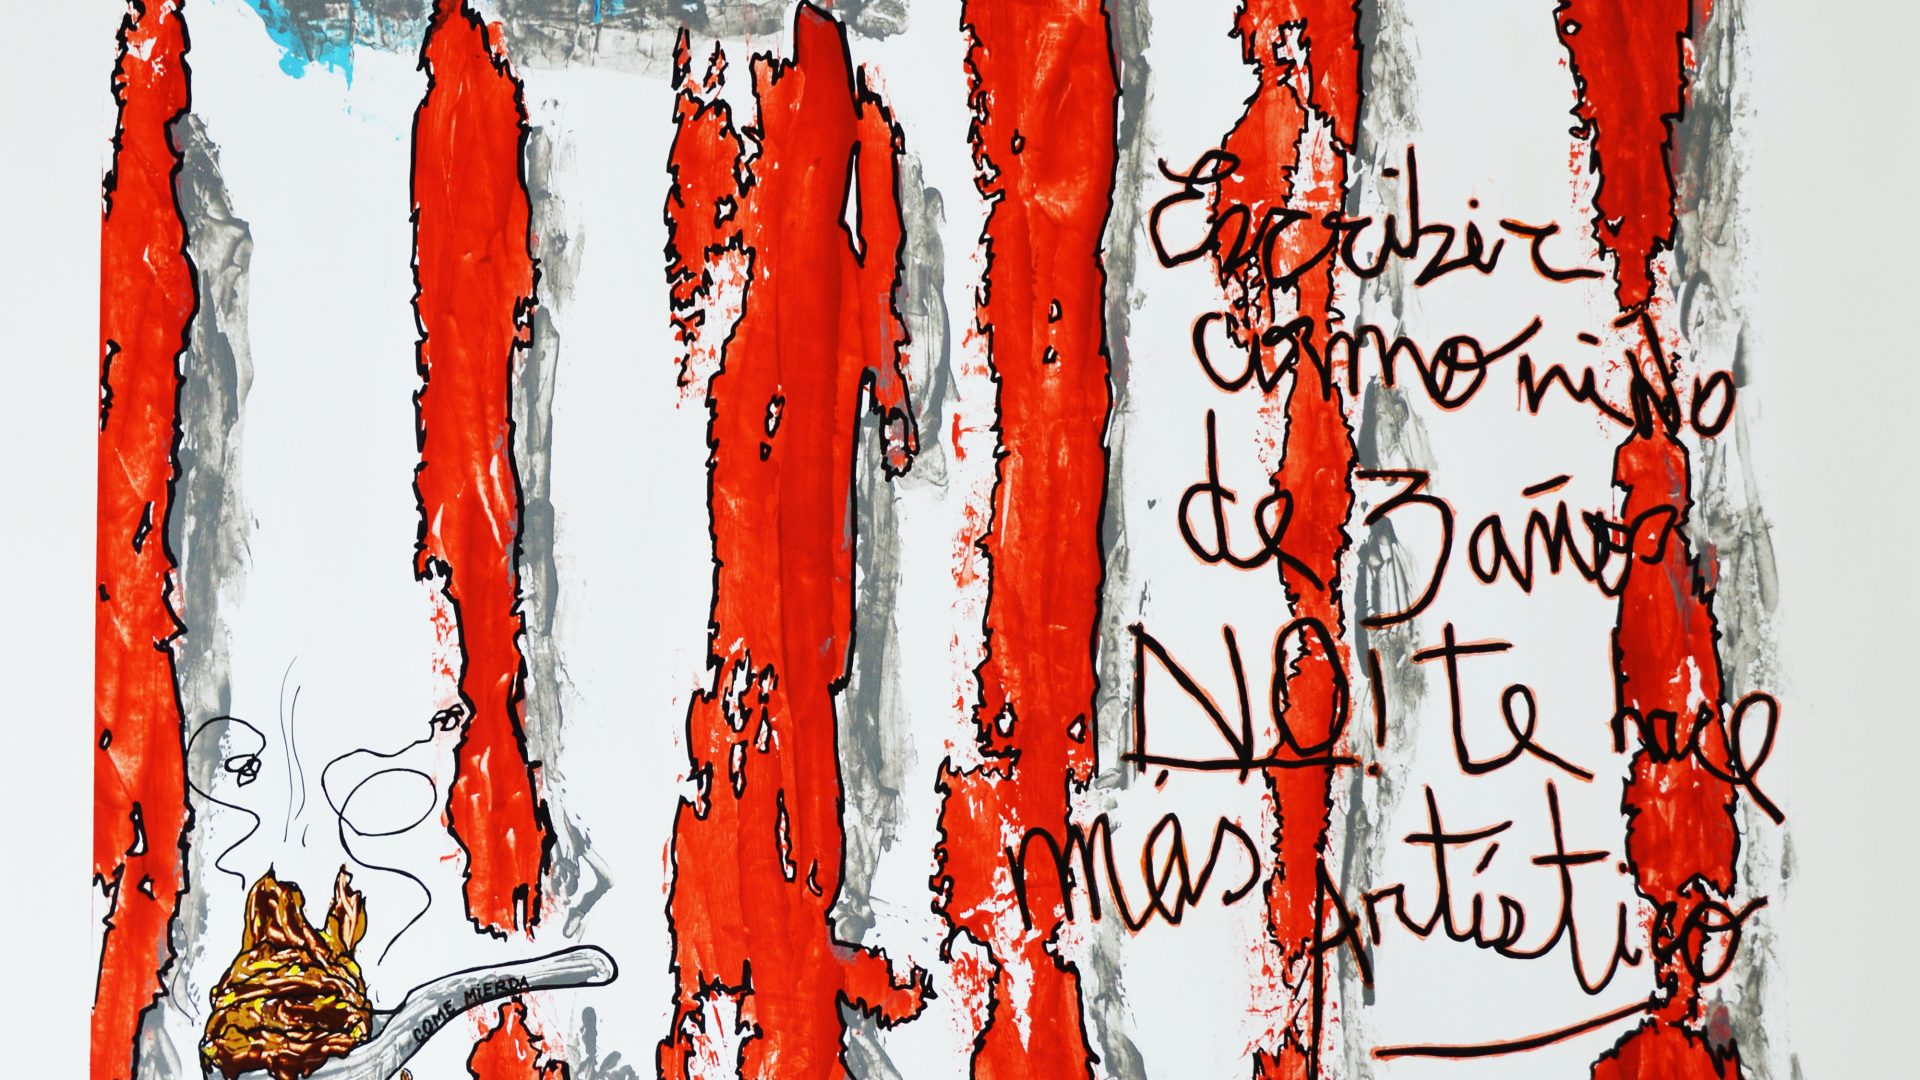 Escribir
como niño
de 3 años
NO! te hace
más Artístico
COME MIERDA